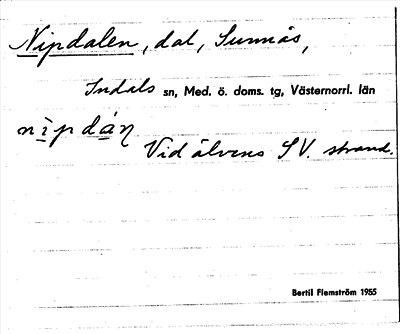 Nipdalen, dal, Sunnås,
Indals sn, Med. ö. doms. tg, Västernorrl. län
nìpdán
Vid älvens SV. strand.
Bertil Flemström 1955